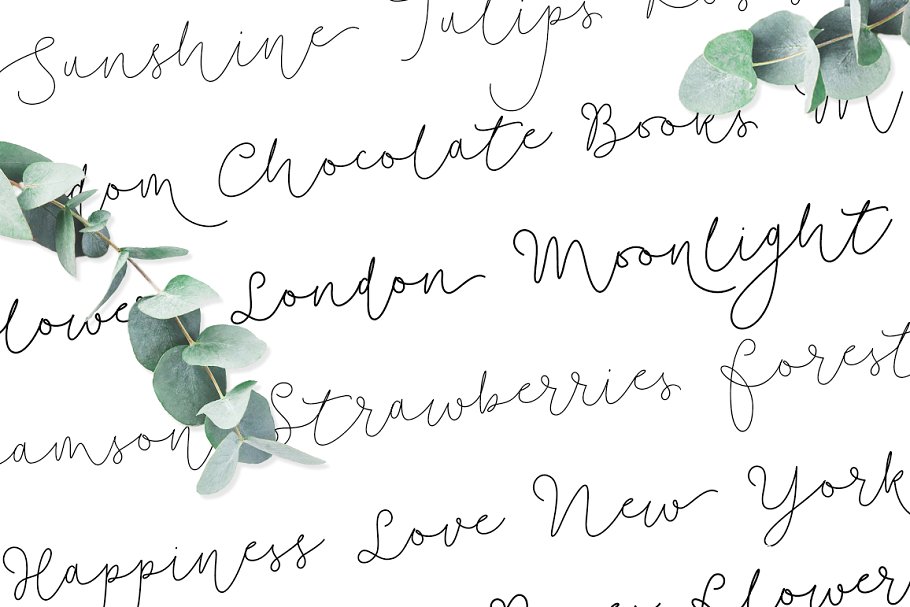 Sunshine Tulips
Chocolate Books
London Moonlight
Strawberries Forest
Happiness Love New York
Flower